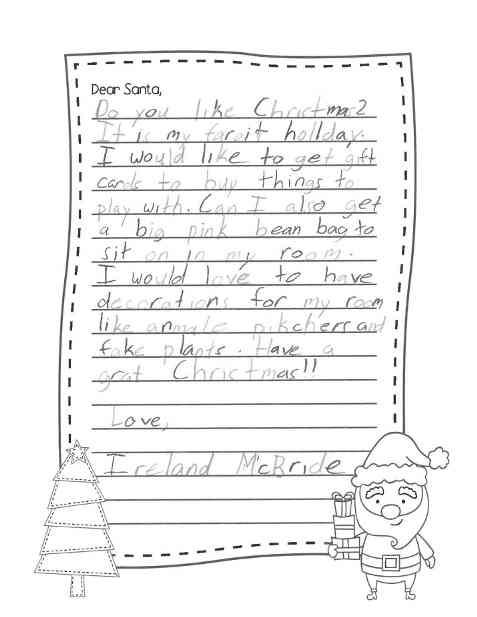 Dear Santa,
Do you like Christmas?
It is my faroit holiday.
I would like to get gift
cards to buy things to
play with. Can I also get
a big pink bean bag to
sit on in my room.
I would love to have
decorations for my room
like anmals pikchers and
fake plants. Have a
grat Christmas!!
Love,
Ireland McBride